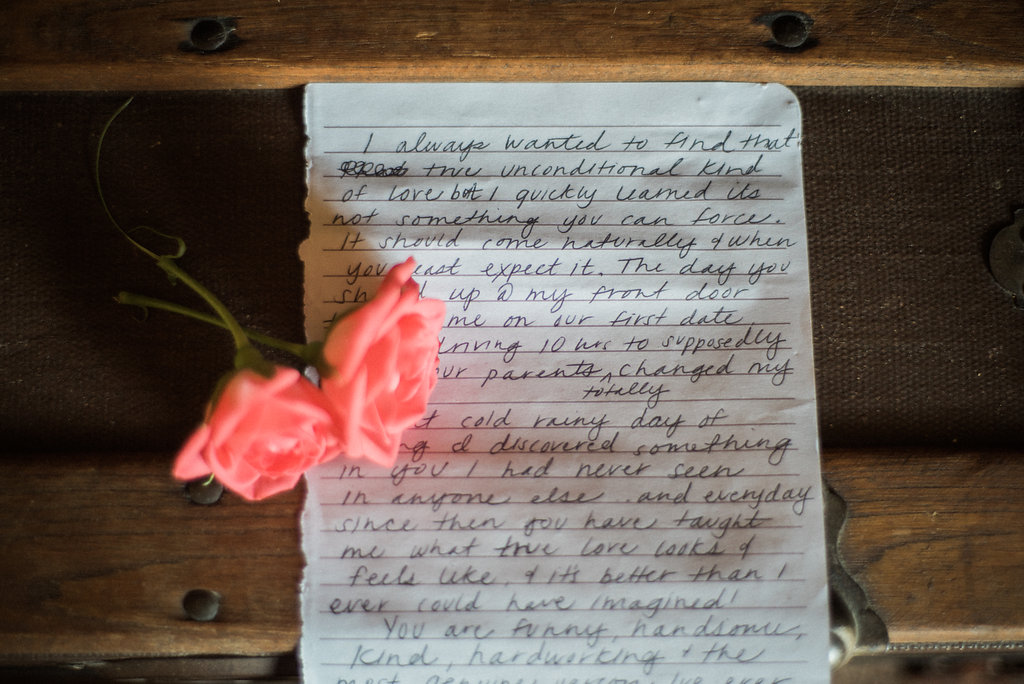 I always wanted to find that
true unconditional kind
of love but I quickly learned its
not something you can force.
It should come naturally & when
you least expect it. The day you
up @ my front door
me on our first date
driving 10 hrs to supposedly
our parents, changed my
totally
cold rainy day of
I discovered something
in you I had never seen
in anyone else and everyday
since then you have taught
me what true love looks &
feels like, & it's better than I
ever could have imagined!
You are funny, handsome,
kind, hardworking & the
most genuine person I've ever